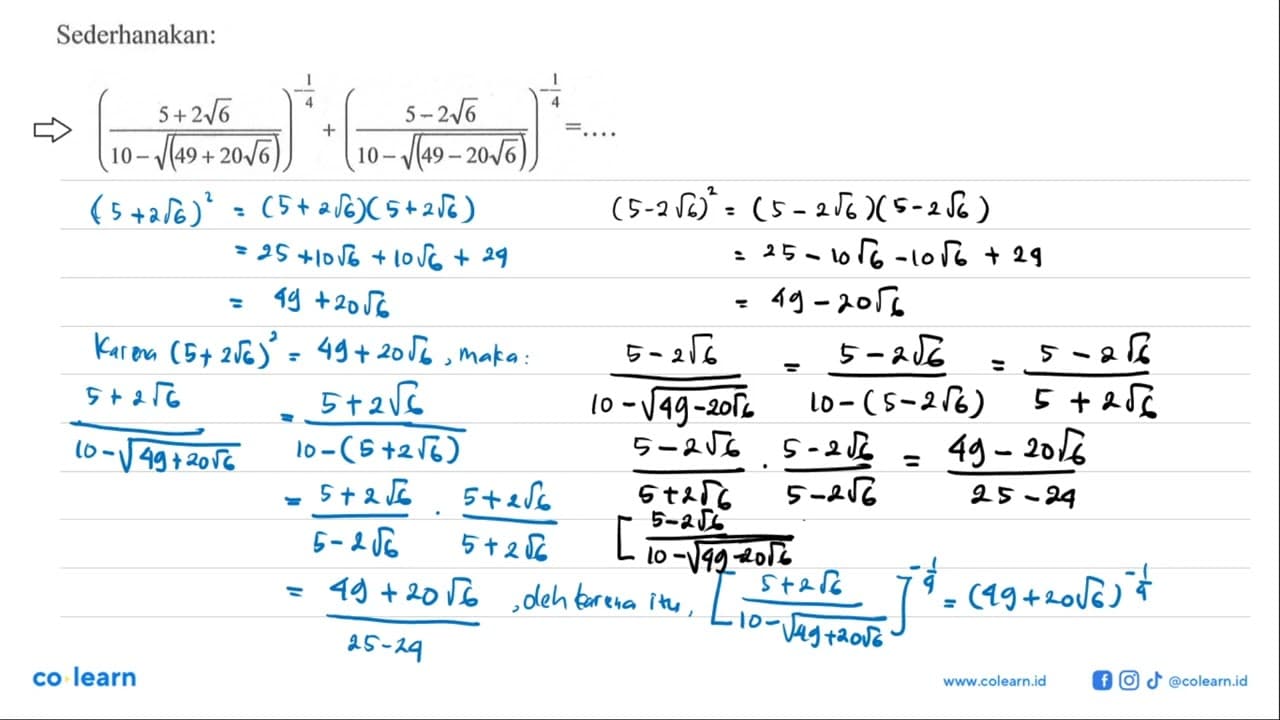 Sederhanakan:
⇨ ((5+2√6)/(10−√(49+20√6)))^(−1/4) + ((5−2√6)/(10−√(49−20√6)))^(−1/4) =....
(5+2√6)² = (5+2√6)(5+2√6)
= 25+10√6+10√6+24
= 49+20√6
Karena (5+2√6)² = 49+20√6, maka:
(5+2√6)/(10−√(49+20√6)) = (5+2√6)/(10−(5+2√6))
= (5+2√6)/(5−2√6) . (5+2√6)/(5+2√6)
= (49+20√6)/(25−24) , oleh karena itu, [(5+2√6)/(10−√(49+20√6))]^(−1/4) = (49+20√6)^(−1/4)
(5−2√6)² = (5−2√6)(5−2√6)
= 25−10√6−10√6+24
= 49−20√6
(5−2√6)/(10−√(49−20√6)) = (5−2√6)/(10−(5−2√6)) = (5−2√6)/(5+2√6)
(5−2√6)/(5+2√6) . (5−2√6)/(5−2√6) = (49−20√6)/(25−24)
[(5−2√6)/(10−√(49−20√6))
co learn
www.colearn.id
@colearn.id